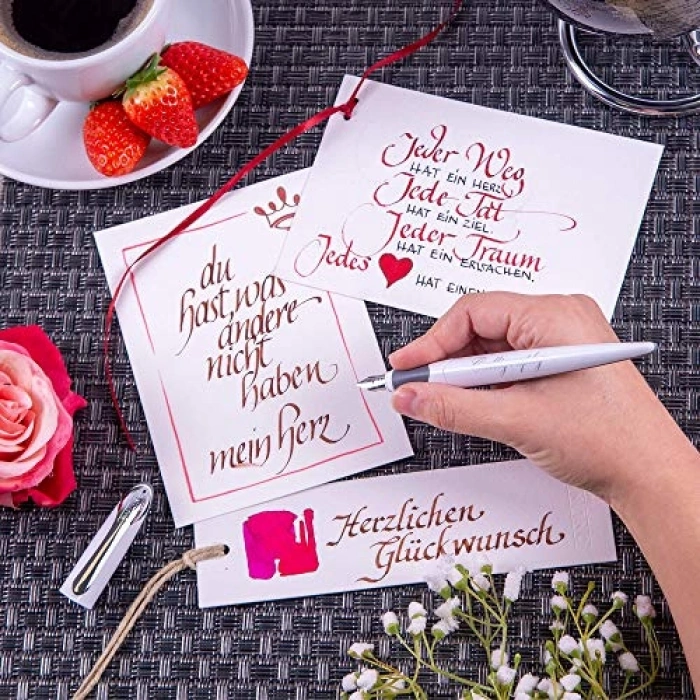 Jeder Weg
HAT EIN HERZ,
Jede Tat
HAT EIN ZIEL.
Jeder Traum
HAT EIN ERWACHEN.
Jedes
HAT EINEN
du
hast, was
andere
nicht
haben
mein Herz
Herzlichen
Glückwunsch